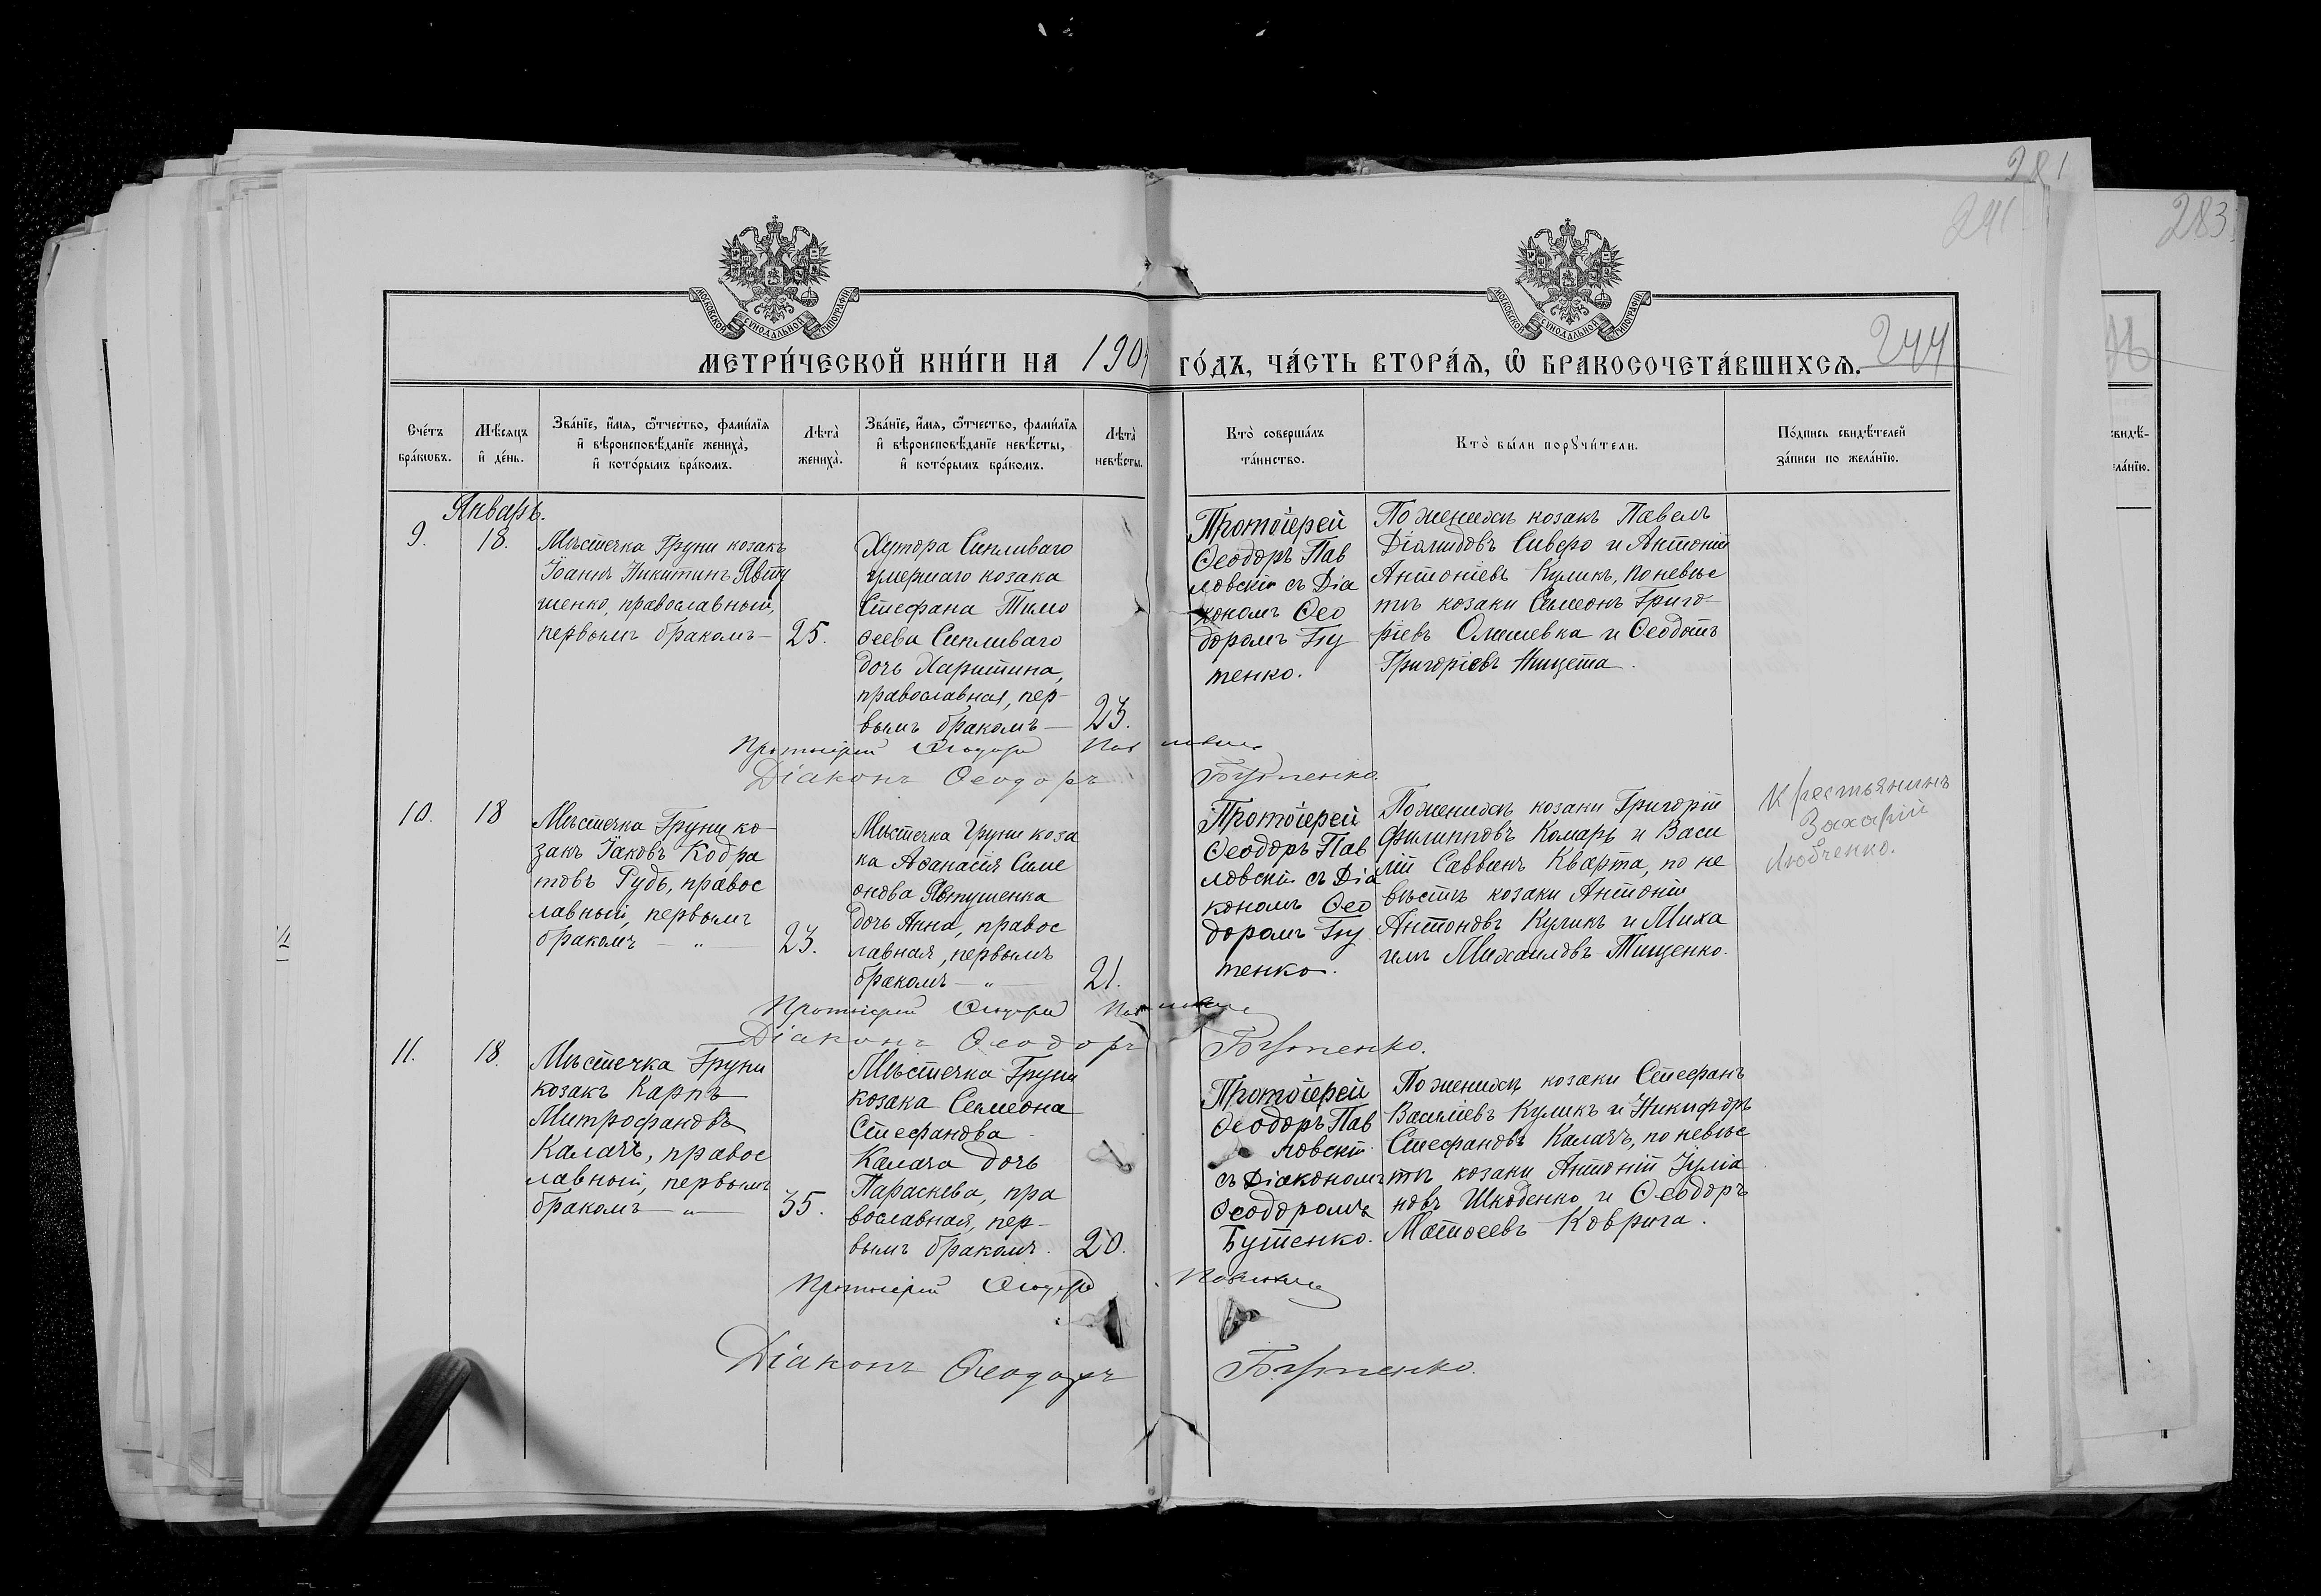 281
241
283
МОСКОВСКОЙ СУНОДАЛЬНОЙ ТИПОГРАФІИ
МОСКОВСКОЙ СУНОДАЛЬНОЙ ТИПОГРАФІИ
МЕТРИ́ЧЕСКОЙ КНИ́ГИ НА 1904 ГО́ДЪ, ЧА́СТЬ ВТОРА́Я, Ѡ БРАКОСОЧЕТА́ВШИХСЯ.
244
Сче́тъ
бра́кѡвъ.
Мѣ́сяцъ
и҆ де́нь.
Зва́нїе, и҆́мя, ѻ҆́тчество, фами́лїя
и҆ вѣроисповѣ́данїе жениха̀,
и҆ кото́рымъ бра́комъ.
Лѣта̀
жениха̀.
Зва́нїе, и҆́мя, ѻ҆́тчество, фами́лїя
и҆ вѣроисповѣ́данїе невѣ́сты,
и҆ кото́рымъ бра́комъ.
Лѣта̀
невѣ́сты.
Кто̀ соверша́лъ
та́инство.
Кто̀ бы́ли порꙋчи́тели.
По́дпись свидѣ́телей
за́писи по жела́нїю.
Январь.
9.
18.
Мѣстечка Груни козакъ
Іоаннъ Никитинъ Явту
шенко, православный,
первымъ бракомъ —
25.
Хутора Сипливаго
умершаго козака
Стефана Тимо
ѳеева Сипливаго
дочь Харитина,
православная, пер-
вымъ бракомъ —
23.
Протоіерей
Ѳеодоръ Пав
ловскій съ Діа
кономъ Ѳео
доромъ Бу
тенко.
По женихѣ козакъ Павелъ
Діомидовъ Сиверо и Антоній
Антоніевъ Куликъ, по невѣс
тѣ козаки Симеонъ Григо-
ріевъ Олишевка и Ѳеодотъ
Григоріевъ Нищета.
Протоіерей Ѳеодоръ Павловскій
Діаконъ Ѳеодоръ Бутенко.
10.
18
Мѣстечка Груни ко-
закъ Іаковъ Кодра
товъ Рудь, правос
лавный, первымъ
бракомъ — „ —
23.
Мѣстечка Груни коза
ка Аѳанасія Симе
онова Явтушенка
дочь Анна, правос
лавная, первымъ
бракомъ — „ —
21.
Протоіерей
Ѳеодоръ Пав
ловскій съ Діа
кономъ Ѳео
доромъ Бу
тенко.
По женихѣ козаки Григорій
Филипповъ Комарь и Васи
лій Саввинъ Кварта, по не
вѣстѣ козаки Антоній
Антоновъ Куликъ и Миха
илъ Михаиловъ Тищенко.
Крестьянинъ
Захарій
Любченко.
Протоіерей Ѳеодоръ Павловскій
Діаконъ Ѳеодоръ Бутенко.
11.
18.
Мѣстечка Груни
козакъ Карпъ
Митрофановъ
Калачъ, правос
лавный, первымъ
бракомъ — „ —
35.
Мѣстечка Груни
козака Симеона
Стефанова
Калача дочь
Параскева, пра
вославная, пер-
вымъ бракомъ.
20.
Протоіерей
Ѳеодоръ Пав
ловскій
съ Діакономъ
Ѳеодоромъ
Бутенко.
По женихѣ козаки Стефанъ
Василіевъ Куликъ и Никифоръ
Стефановъ Калачъ, по невѣс
тѣ козаки Антоній Іуліа
новъ Шкоденко и Ѳеодоръ
Матѳеевъ Коврига.
Протоіерей Ѳеодоръ Павловскій
Діаконъ Ѳеодоръ Бутенко.